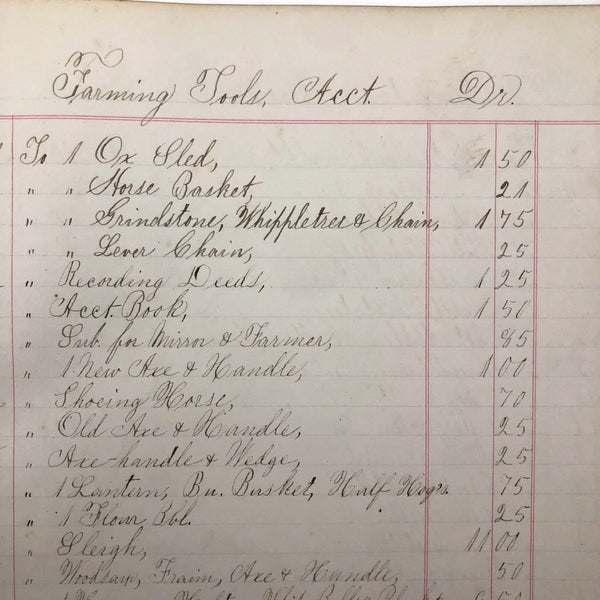 Farming Tools, Acct. Dr.
To 1 Ox Sled, 1 50
" " Horse Basket, 21
" " Grindstone, Whippletree & Chain, 1 75
" " Lever Chain, 25
" Recording Deeds, 1 25
" Acct. Book, 1 50
" Sub. for Mirror & Farmer, 85
" 1 New Axe & Handle, 1 00
" Shoeing Horse, 70
" Old Axe & Handle, 25
" Axe-handle & Wedge, 25
" 1 Lantern, Bu. Basket, Half Hogs. 75
" 1 Flour Bbl. 25
" Sleigh, 11 00
" Woodsaw, Fraim, Axe & Handle, 50